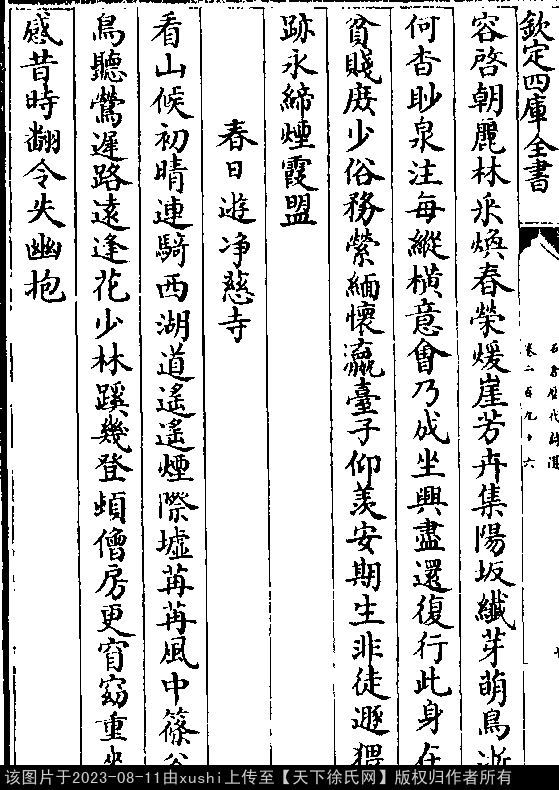 欽定四庫全書
石倉歷代詩選
卷二百九十六
容啓朝麗林采煥春榮煖崖芳卉集陽坂纖芽萌鳥逝
何杳眇泉注每縱橫意會乃成坐興盡還復行此身在
貧賤庶少俗務縈緬懷瀛臺子仰羨安期生非徒遯猥
跡永締煙霞盟
春日遊净慈寺
看山候初晴連騎西湖道遙遙煙際墟苒苒風中篠谷
鳥聽鶯遲路遠逢花少林蹊幾登頓僧房更窅窈重坐
感昔時翻令失幽抱
该图片于2023-08-11由xushi上传至【天下徐氏网】版权归作者所有